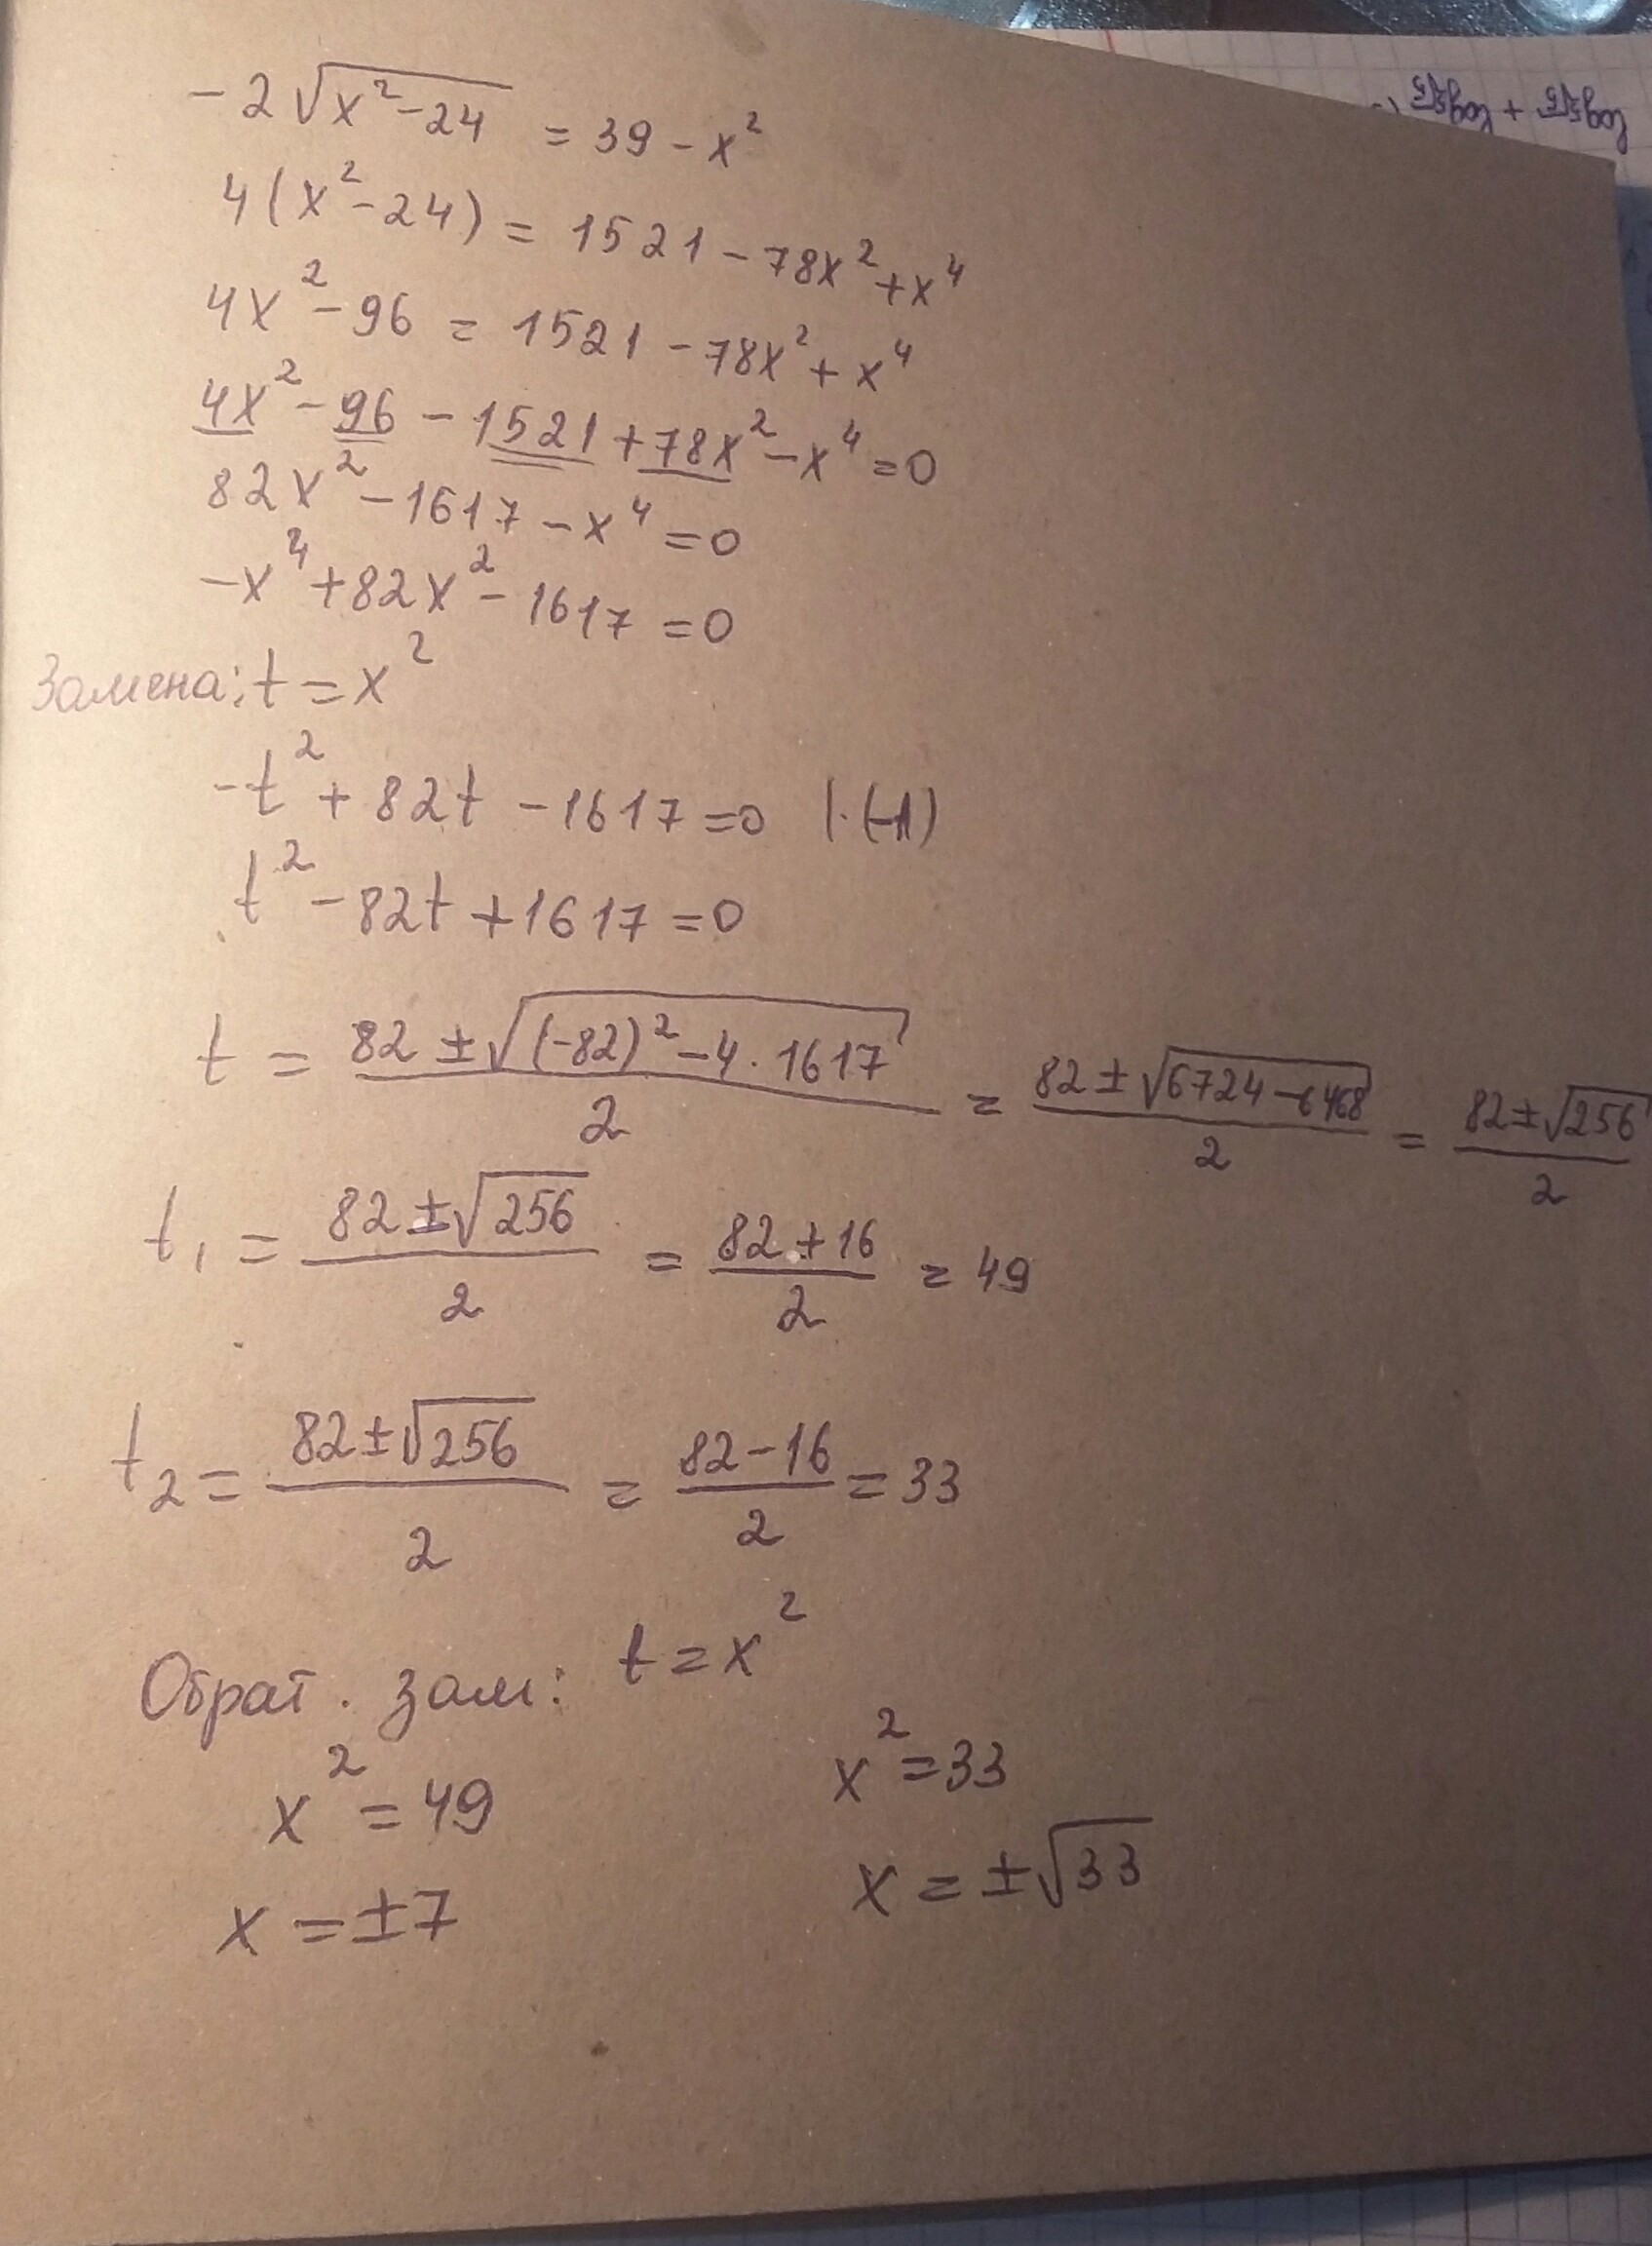 log₅√5 + log
-2√(x²-24) = 39 - x²
4(x²-24) = 1521 - 78x² + x⁴
4x² - 96 = 1521 - 78x² + x⁴
4x² - 96 - 1521 + 78x² - x⁴ = 0
82x² - 1617 - x⁴ = 0
-x⁴ + 82x² - 1617 = 0
Замена: t = x²
-t² + 82t - 1617 = 0 |·(-1)
t² - 82t + 1617 = 0
t = (82 ± √((-82)² - 4·1617))/2 = (82 ± √(6724 - 6468))/2 = (82 ± √256)/2
t₁ = (82 ± √256)/2 = (82 + 16)/2 = 49
t₂ = (82 ± √256)/2 = (82 - 16)/2 = 33
Обрат. зам: t = x²
x² = 49 x² = 33
x = ±7 x = ±√33